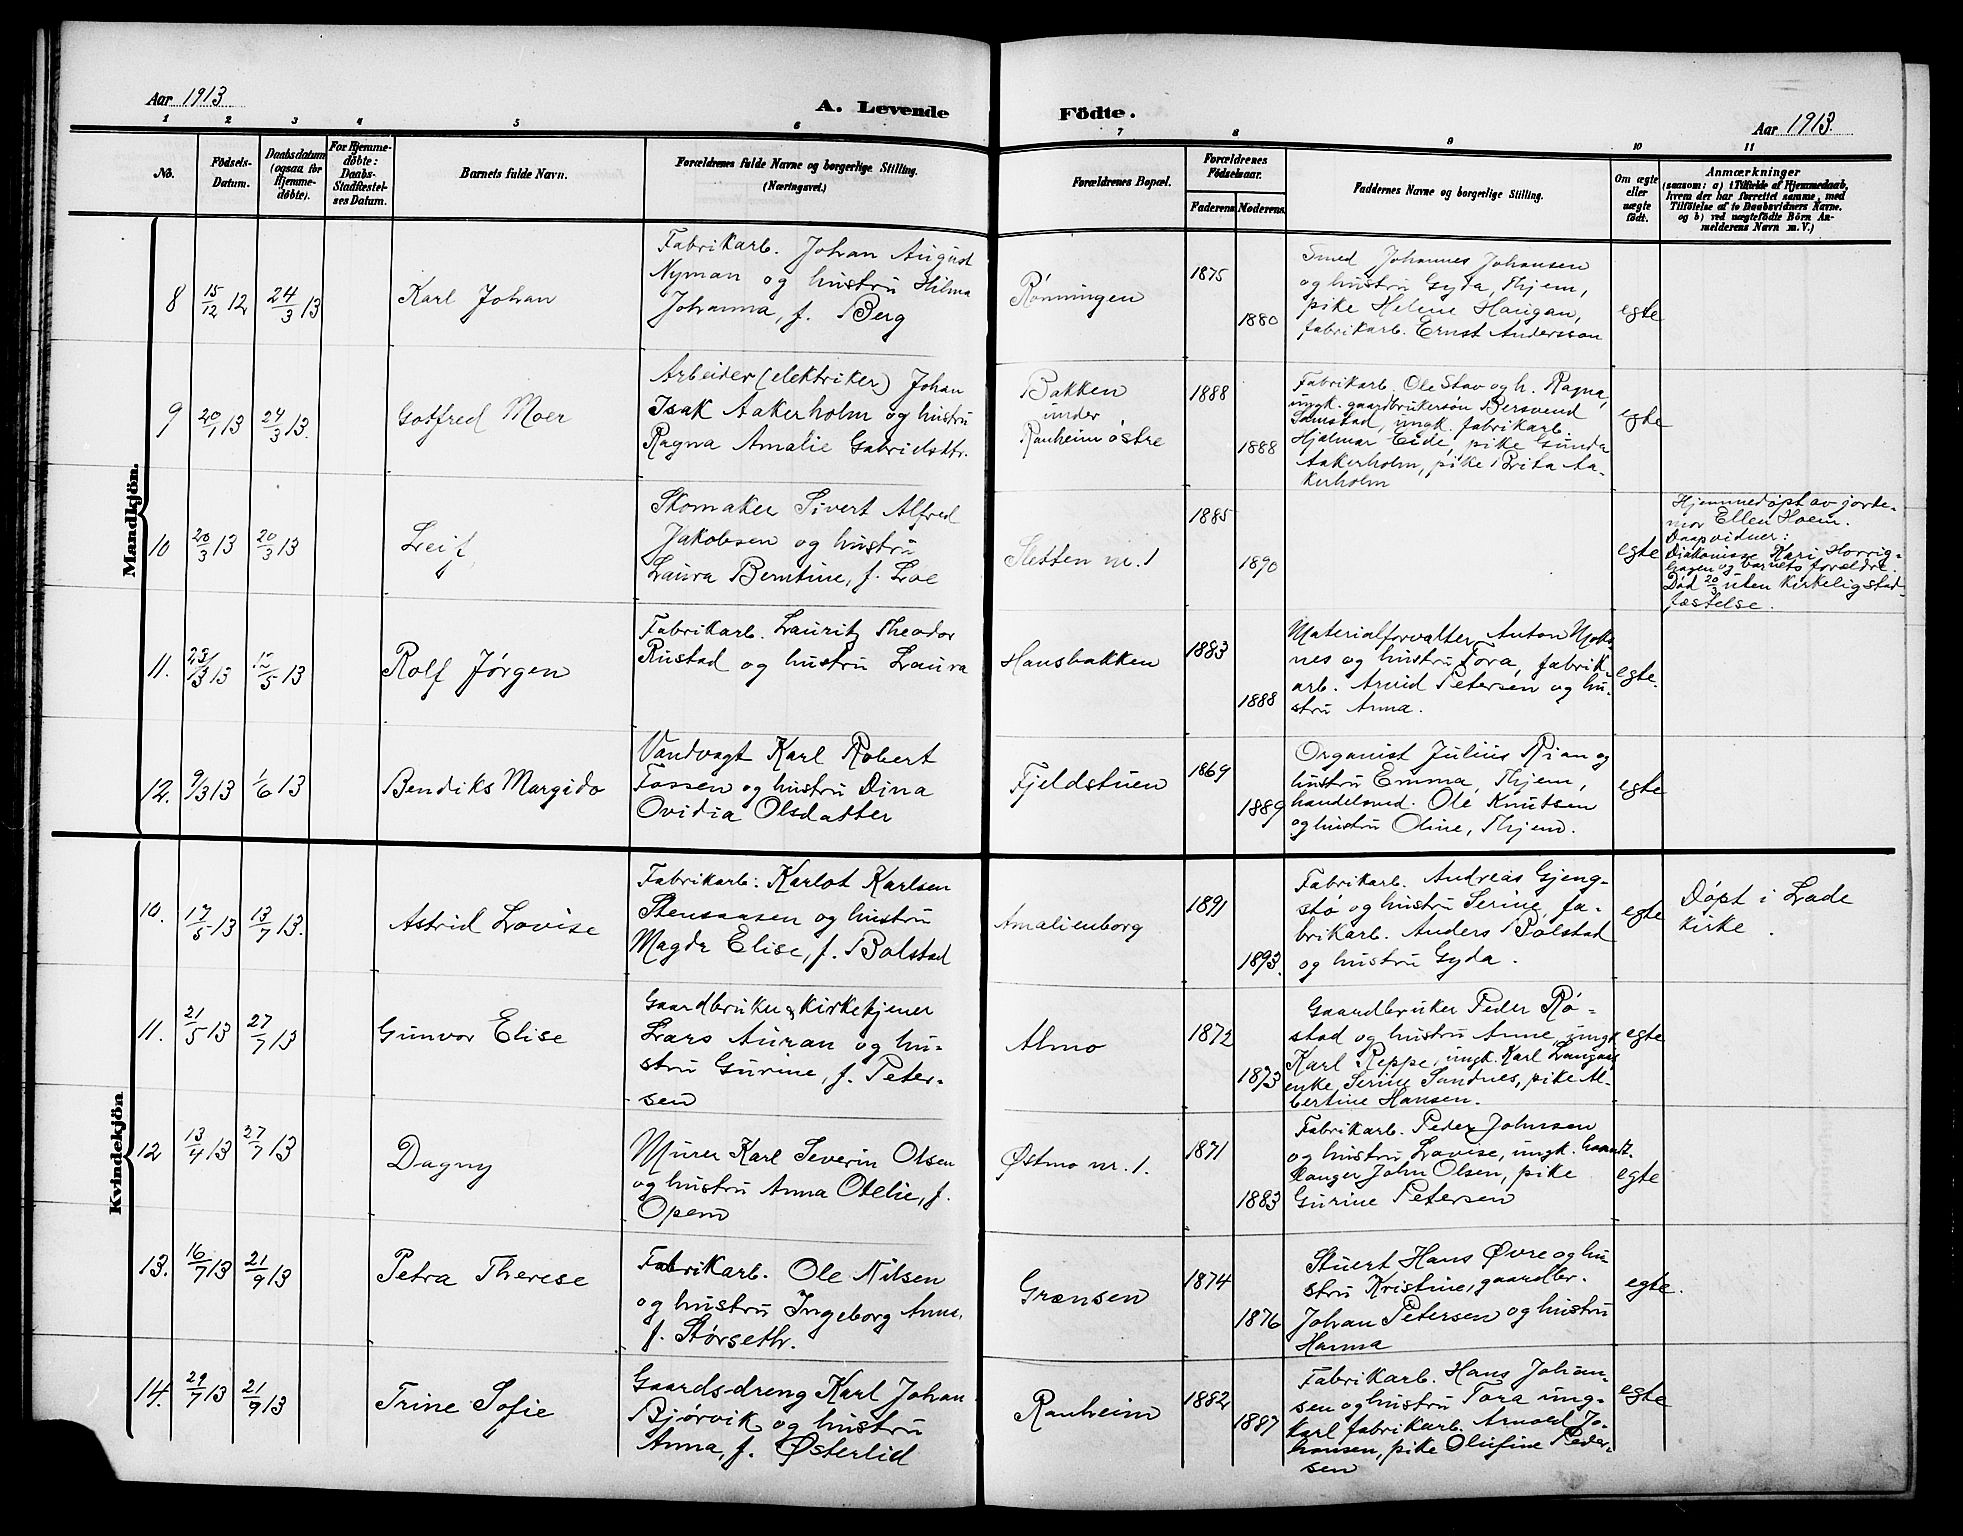 Aar 1913
A. Levende
Födte.
Aar 1913.
1 2 3 4 5 6 7 8 9 10 11
No.
Födsels-
Datum.
Daabsdatum
(ogsaa for
Hjemme-
døbte).
For Hjemme-
døbte:
Daabs-
Stadfæstel-
ses Datum.
Barnets fulde Navn.
Forældrenes fulde Navne og borgerlige Stilling.
(Næringsvei.)
Forældrenes Bopæl.
Forældrenes
Födselsaar.
Faderens. Moderens.
Faddernes Navne og borgerlige Stilling.
Om ægte
eller
uægte
födt.
Anmærkninger
(saasom: a) i Tilfælde af Hjemmedaab,
hvem der har forrettet samme, med
Tilföielse af to Daabsvidners Navne.
og b) ved uægtefödte Börn An-
melderens Navn m. V.)
Mandkjön.
8
15/12 12
24/3 13
Karl Johan
Fabrikarb. Johan August
Nyman og hustru Hilma
Johanna, f. Berg
Rønningen
1875
1880
Smed Johannes Johansen
og hustru Gyda, Thjem,
pike Helene Haugan,
fabrikarb. Ernst Andersson
egte
9
20/1 13
24/3 13.
Gotfred Moer
Arbeider (elektriker) Johan
Isak Aakerholm og hustru
Ragna Amalie Gabrielsdtr.
Bakken
under
Ranheim østre
1888
1888
Fabrikarb. Ole Stav og h. Ragna,
ungk. gaardbrukersøn Bersvend
Samstad, ungk. fabrikarb.
Hjalmar Eide, pike Gunda
Aakerholm, pike Brita Aa-
kerholm
egte
10
20/3 13
20/3 13
Leif
Skomaker Sivert Alfred
Jakobsen og hustru
Laura Berntine, f. Loe
Sletten nr. 1
1885
1890
egte
Hjemmedøpt av jorde-
mor Ellen Hoem.
Daapvidner:
Diakonisse Kari Horrig-
hagen og barnets forældre.
Død 20/3 uten kirkelig stad-
fæstelse.
11.
23/1 13
12/5 13
Rolf Jørgen
Fabrikarb. Lauritz Theodor
Rustad og hustru Laura
Hansbakken
1883
1888
Materialforvalter Anton
nes og hustru Tora, fabrik
arb. Arvid Petersen og hu-
stru Anna.
egte.
12.
9/3 13
1/6 13
Bendiks Margido
Vandvagt Karl Robert
Fossen og hustru Dina
Ovidia Olsdatter
Fjeldstuen
1869
1889
Organist Julius Rian og
hustru Emma, Thjem,
handelsmd. Ole Knutsen
og hustru Oline, Thjem.
egte
Kvindekjön.
10.
17/5 13
13/7 13.
Astrid Lovise
Fabrikarb: Karlot Karlsen
Stensaasen og hustru
Magda Elise, f. Bolstad
Amalienborg
1891
1893.
Fabrikarb. Andreas Gjeng-
stø og hustru Serine, fa-
brikarb. Anders Bolstad
og hustru Gyda.
egte
Døpt i Lade
kirke.
11.
21/5 13
27/7 13
Gunvor Elise
Gaardbruker & kirketjener
Lars Auran og hu-
stru Gurine, f. Peter-
sen
Almo
1872
1873
Gaardbruker Peder Rø-
stad og hustru Anne, ungk
Karl Reppe, ungk. Karl Langaas
enke Serine Sandnes, pike Al-
bertine Hansen.
egte
12
13/4 13
27/7 13
Dagny
Murer Karl Severin Olsen
og hustru Anna Otelie, f.
Opem
Østmo nr. 1.
1871
1883
Fabrikarb. Peder Johnsen
og hustru Lovise, ungk. Gaardt-
langer John Olsen, pike
Gurine Petersen
egte
13.
16/7 13
21/9 13
Petra Therese
Fabrikarb. Ole Nilsen
og hustru Ingeborg Anna,
f. Størseth.
Grænsen
1874
1876
Stuert Hans Øvre og hu
stru Kristine, gaardbr.
Johan Petersen og hustru
Hanna
egte.
14.
29/7 13
21/9 13
Trine Sofie
Gaardsdreng Karl Johan
Bjørvik og hustru
Anna, f. Østerlid
Ranheim
1882
1887
Fabrikarb. Hans Johan-
sen og hustru Tora ung-
karl fabrikarb. Arnold Jo-
hansen, pike Olufine Peder-
sen
egte